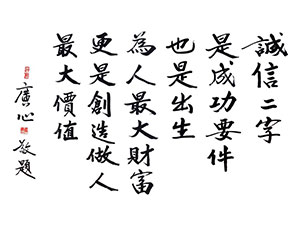 誠信二字
是成功要件
也是出生
為人最大財富
更是創造做人
最大價值
廣心敬題